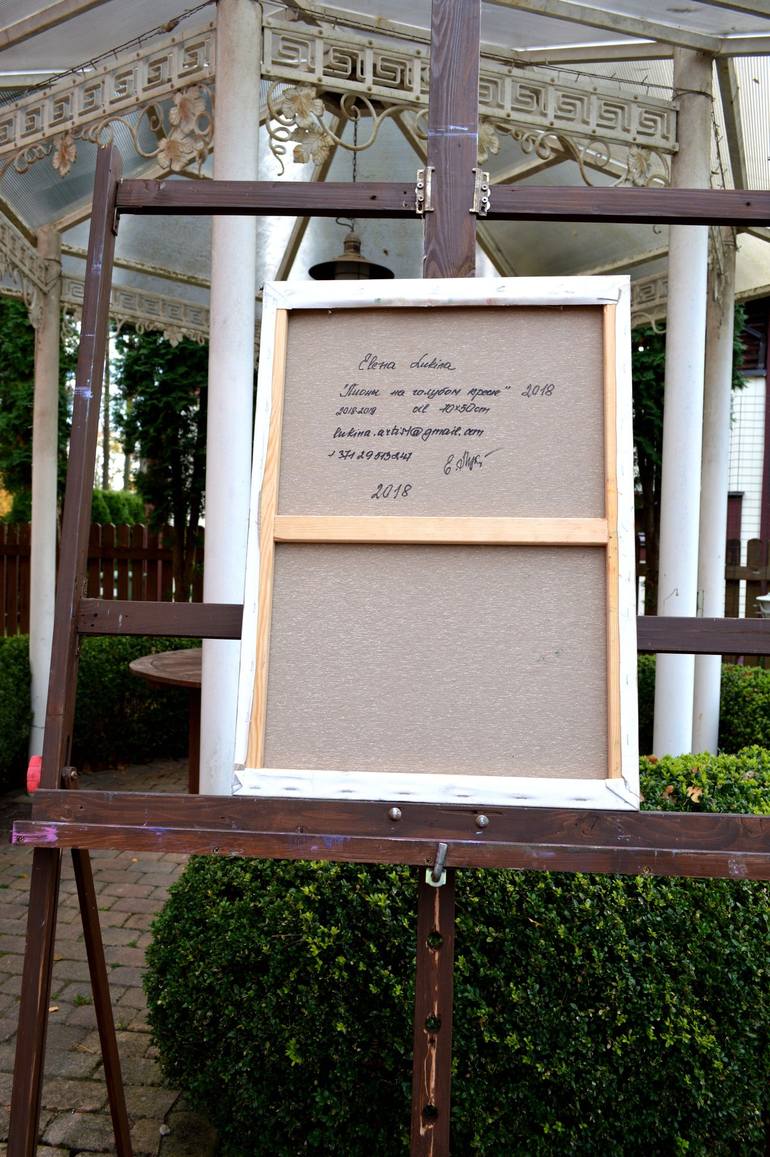 Elena Lukina
"Пионы на голубом кресле" 2018
2018.2018 oil 70x50cm
lukina.artist@gmail.com
2018